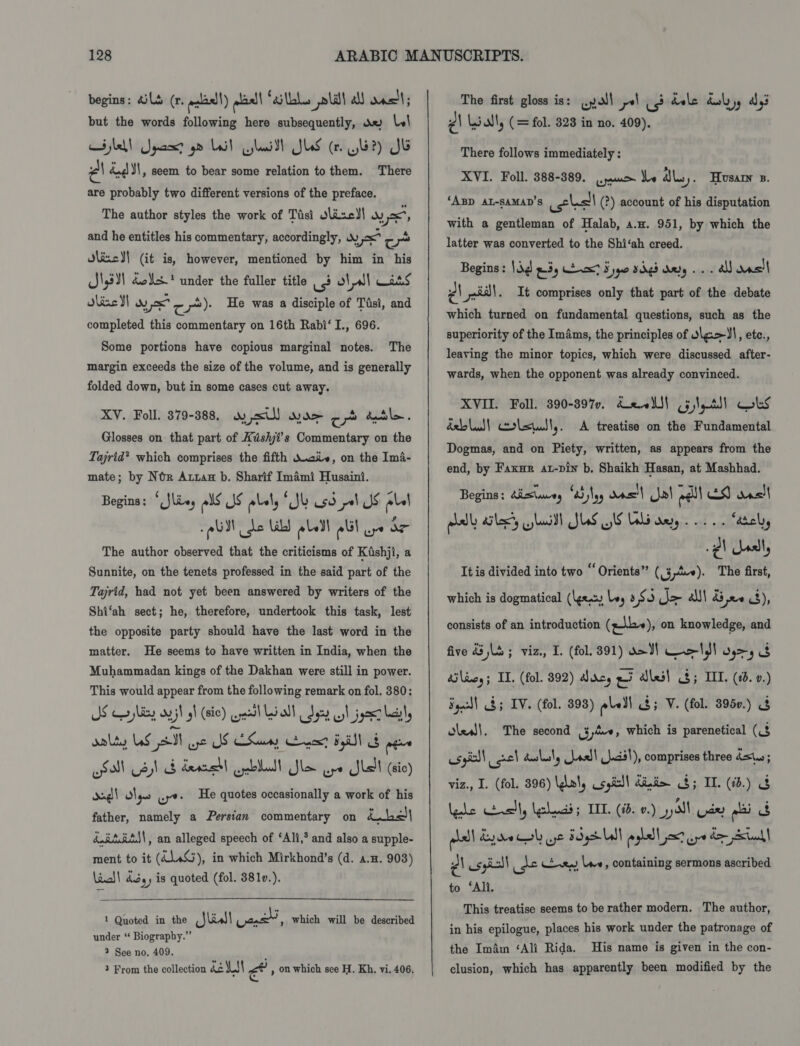 128 ARABIC MANUSCRIPTS.
begins: الحمد لله القاهر سلطانه‘ العظم (r. العظيم) شانه;
but the words following here subsequently, اما بعد
قال (?فان r.) كمال الانسان انما هو بحصول المعارف
الالهية الخ, seem to bear some relation to them. There
are probably two different versions of the preface.
The author styles the work of Tūsī تجريد الاعتقاد,
and he entitles his commentary, accordingly, شرح تجريد
الاعتقاد (it is, however, mentioned by him in his
خلاصة الاقوال¹ under the fuller title كشف المراد فى
شرح تجريد الاعتقاد). He was a disciple of Tūsī, and
completed this commentary on 16th Rabī‘ I., 696.
Some portions have copious marginal notes. The
margin exceeds the size of the volume, and is generally
folded down, but in some cases cut away.
XV. Foll. 379-388. حاشية شرح جديد للتجريد.
Glosses on that part of Kúshjí's Commentary on the
Tajríd² which comprises the fifth مقصد, on the Imâ-
mate; by Nūr Allah b. Sharīf Imāmī Husainī.
Begins: امام كل امر ذى بال‘ وامام كل كلام ومقال‘
حمد من اقام الامام لطفا على الانام.
The author observed that the criticisms of Kūshjī, a
Sunnite, on the tenets professed in the said part of the
Tajríd, had not yet been answered by writers of the
Shī‘ah sect; he, therefore, undertook this task, lest
the opposite party should have the last word in the
matter. He seems to have written in India, when the
Muhammadan kings of the Dakhan were still in power.
This would appear from the following remark on fol. 380:
وايضا يجوز ان يتولى الدنيا اثنين (sic) او ازيد يتقارب كل
منهم فى القوة بحيث يمسك كل عن الاخر كما يشاهد
(sic) الحال من حال السلاطين المجتمعة فى ارض الدكن
من سواد الهند. He quotes occasionally a work of his
father, namely a Persian commentary on الخطبة
الشقشقية, an alleged speech of ‘Alī,³ and also a supple-
ment to it (تكملة), in which Mīrkhond's (d. A.H. 903)
روضة الصفا is quoted (fol. 381v.).
¹ Quoted in the تلخيص المقال, which will be described
under “Biography.”
² See no. 409.
³ From the collection نهج البلاغة, on which see H. Kh. vi. 406.
The first gloss is: قوله ورياسة عامة فى امر الدين
والدنيا الخ (= fol. 323 in no. 409).
There follows immediately:
XVI. Foll. 388-389. رسالة ملا حسين. Husain b.
‘Abd al-samad's الجباعى (?) account of his disputation
with a gentleman of Halab, A.H. 951, by which the
latter was converted to the Shī‘ah creed.
Begins: الحمد لله ... وبعد فهذه صورة بحث وقع لهذا
الفقير الخ. It comprises only that part of the debate
which turned on fundamental questions, such as the
superiority of the Imāms, the principles of الاجتهاد, etc.,
leaving the minor topics, which were discussed after-
wards, when the opponent was already convinced.
XVII. Foll. 390-397v. كتاب الشوارق اللامعة
والسبحات الساطعة. A treatise on the Fundamental
Dogmas, and on Piety, written, as appears from the
end, by Fakhr al-dīn b. Shaikh Hasan, at Mashhad.
Begins: الحمد لك اللهم اهل الحمد ووارثه‘ ومستحقه
وباعثه‘ ..... وبعد فلما كان كمال الانسان ونجاته بالعلم
والعمل الخ.
It is divided into two “Orients” (مشرق). The first,
which is dogmatical (فى معرفة الله جل ذكره وما يتبعها),
consists of an introduction (مطلع), on knowledge, and
five شارقة; viz., I. (fol. 391) فى وجود الواجب الاحد
وصفاته; II. (fol. 392) فى افعاله تع وعدله; III. (ib. v.)
فى النبوة; IV. (fol. 393) فى الامام; V. (fol. 395v.) فى
المعاد. The second مشرق, which is parenetical (فى
افضل العمل واساسه اعنى التقوى), comprises three سبحة;
viz., I. (fol. 396) فى حقيقة التقوى واهلها; II. (ib.) فى
فضيلتها والحث عليها; III. (ib. v.) فى نظم بعض الدرر
المستخرجة من بحر العلوم الماخوذة عن باب مدينة العلم
مما يبعث على التقوى الخ, containing sermons ascribed
to ‘Alī.
This treatise seems to be rather modern. The author,
in his epilogue, places his work under the patronage of
the Imām ‘Alī Ridā. His name is given in the con-
clusion, which has apparently been modified by the